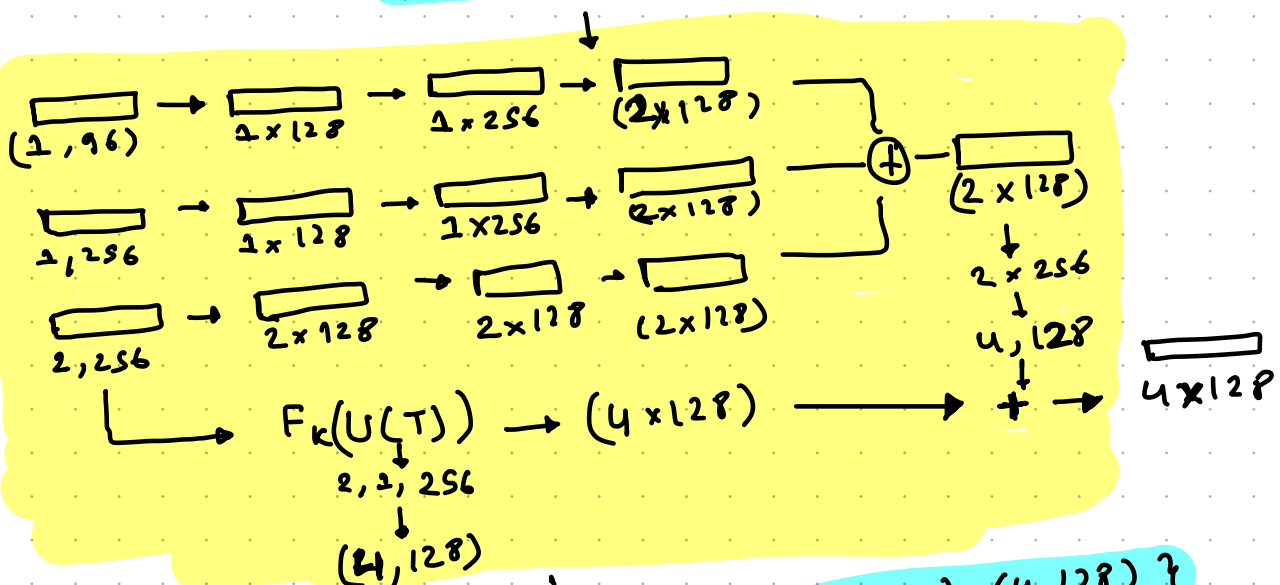 (1,96) 1×128 1×256 (2×128)
1,256 1×128 1×256 (2×128) + (2×128)
2,256 2×128 2×128 (2×128) 2×256
4,128
F_K(U(T)) (4×128) + 4×128
2,2,256
(4,128)
(4,128)}